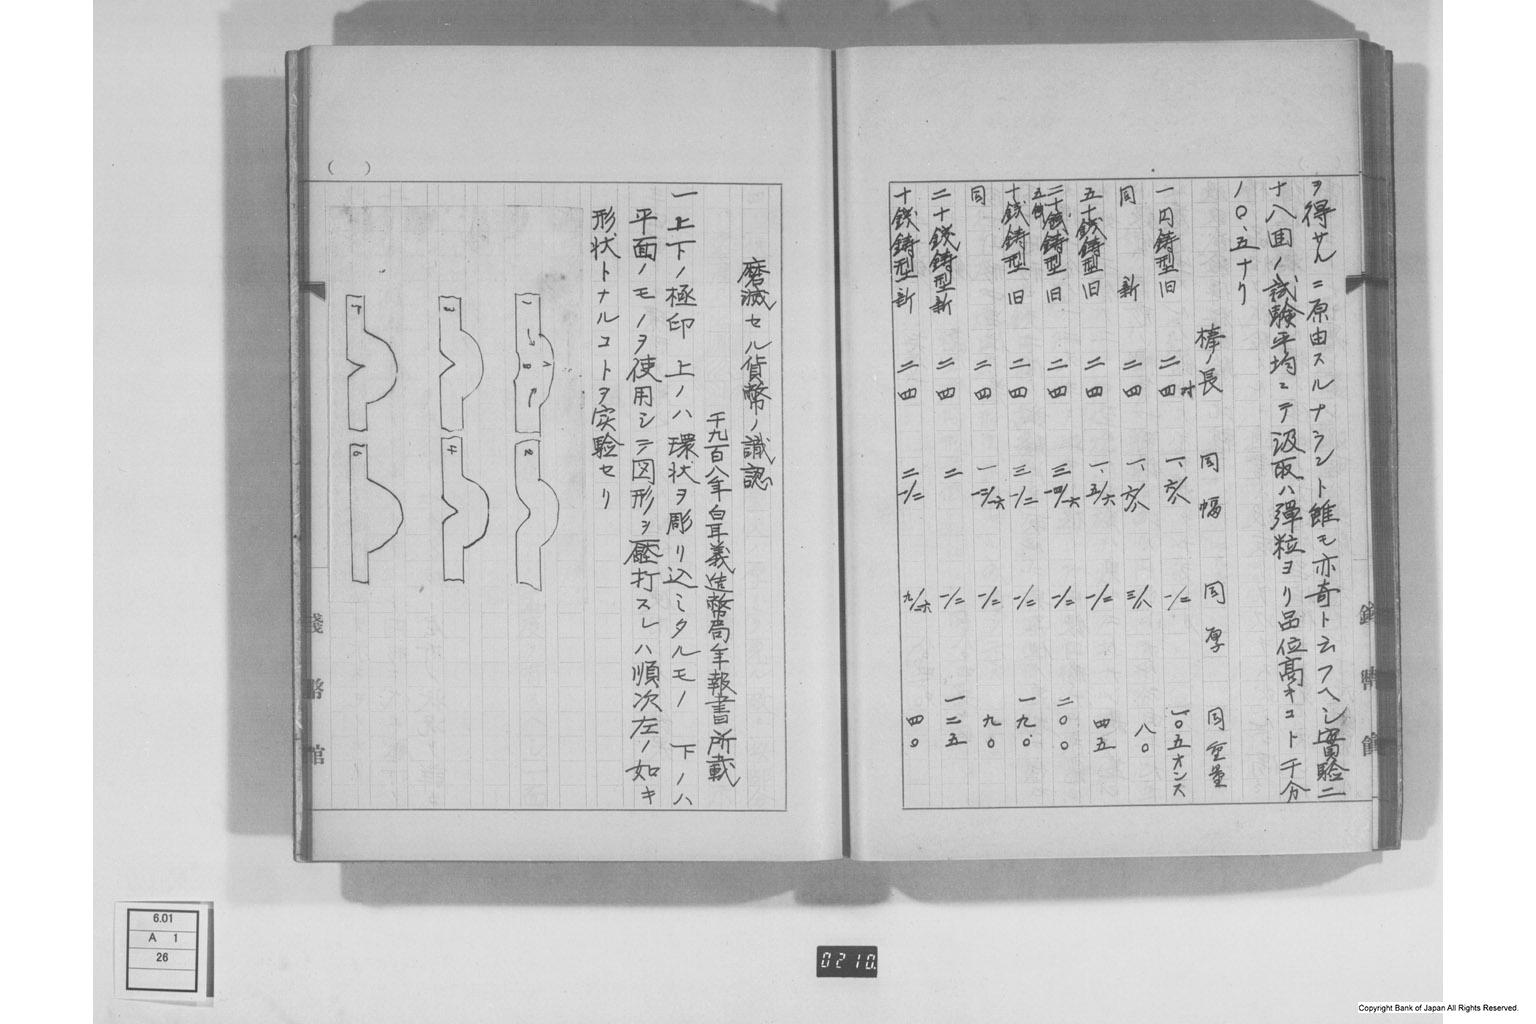 ヲ得サルニ原由スルナラント雖モ亦奇ト云フヘシ實驗ニ
十八囬ノ試験平均ニテ汲取ハ彈粒ヨリ品位高キコト千分
ノ〇、五ナリ
棒ノ長 同幅 同厚 同重量
一円鋳型旧 二四吋 一、六/八 一/二 一、〇五オンス
同 新 二四 一、六/八 三/八 八〇
五十銭鋳型旧 二四 一、五/六 一/二 四五
二十銭鋳型旧 二四 三 一四/六 一/二 二〇〇
五銭
十銭鋳型旧 二四 三 一/二 一/二 一九〇
同 二四 一 一三/一六 一/二 九〇
二十銭鋳型新 二四 二 一/二 一二五
十銭鋳型新 二四 二 一/二 九/一六 四〇
磨滅セル貨幣ノ識認
千九百八年白耳義造幣局年報書所載
一上下ノ極印 上ノハ環状ヲ彫リ込ミタルモノ 下ノハ
平面ノモノヲ使用シテ図形ヲ壓打スレハ順次左ノ如キ
形状トナルコトヲ実験セリ
銭幣館
( )
6.01
A 1
26
0210.
Copyright Bank of Japan All Rights Reserved.